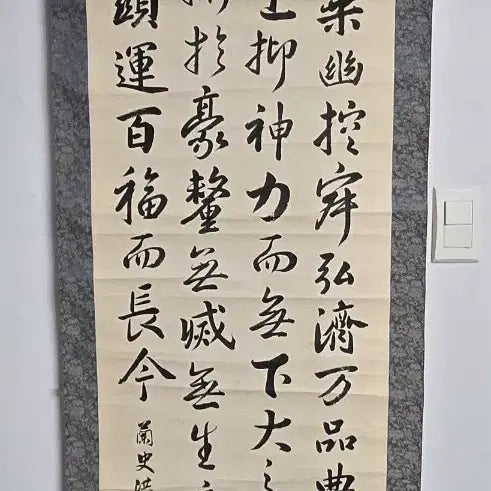 乘幽控寂弘濟万品典
上抑神力而無下大之
於豪釐無滅無生
顯運百福而長今
蘭史